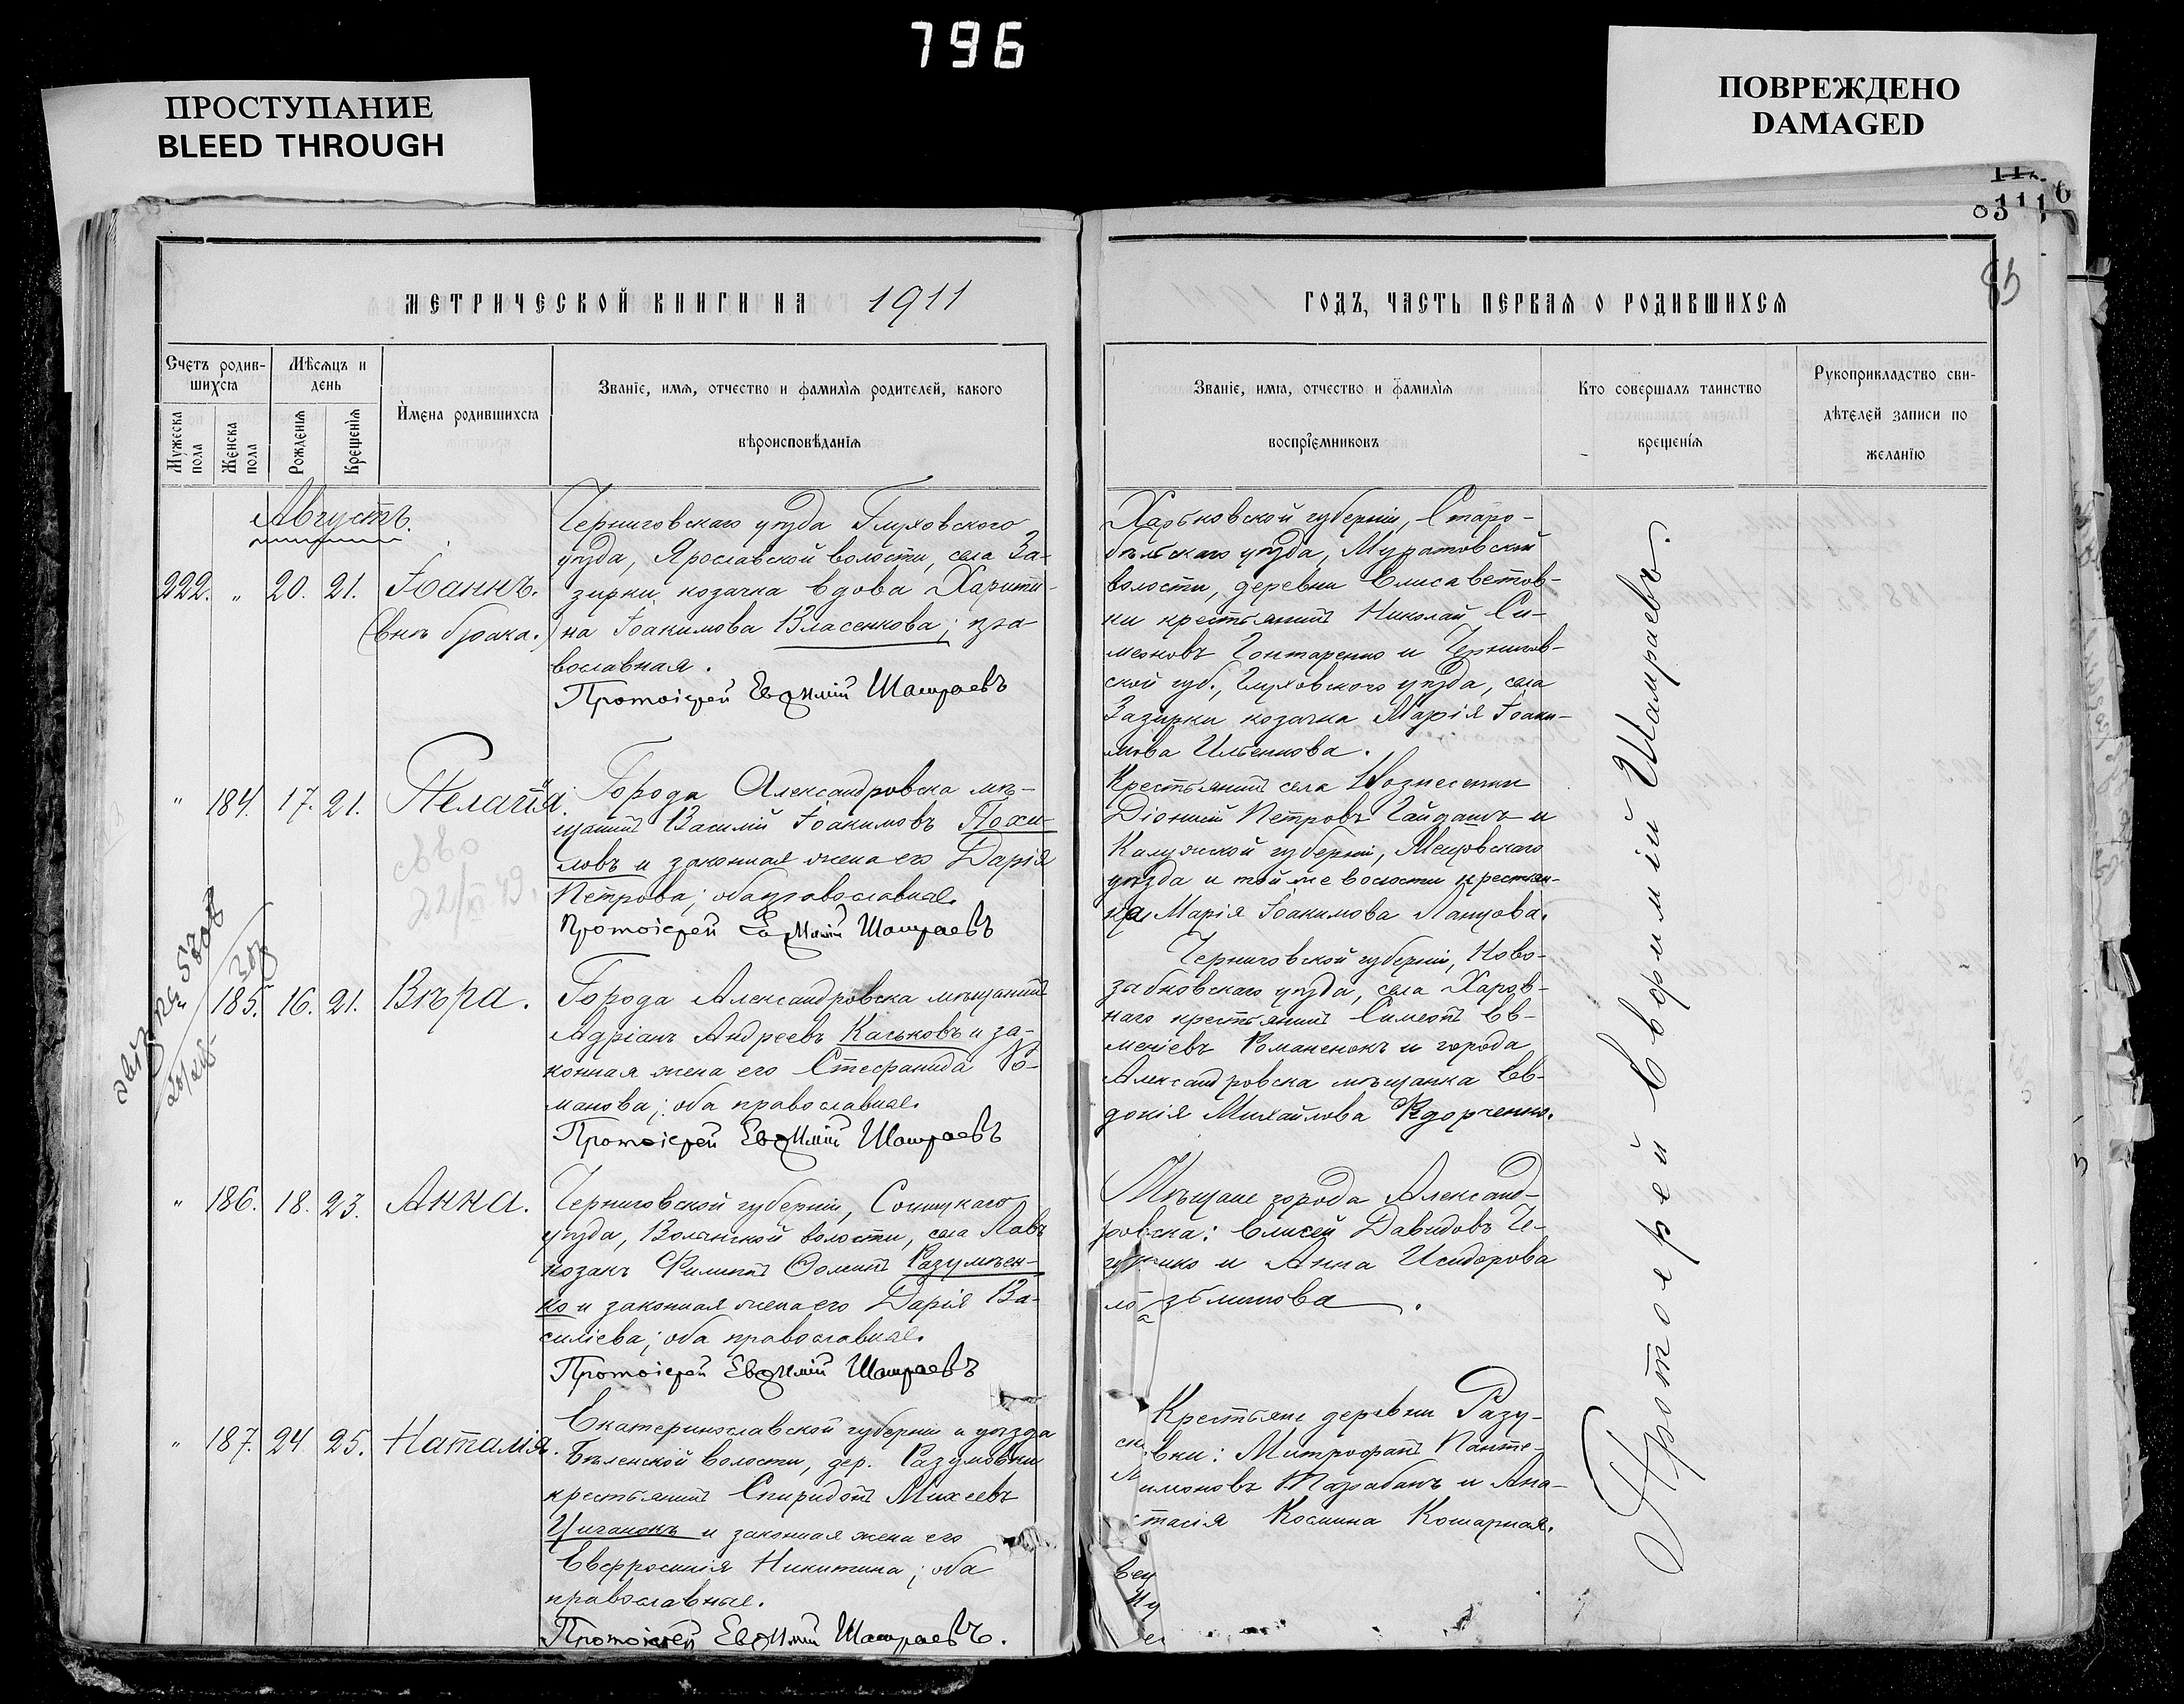 796
ПРОСТУПАНИЕ
BLEED THROUGH
ПОВРЕЖДЕНО
DAMAGED
85
МЕТРИЧЕСКОЙ КНИГИ НА 1911
ГОДЪ, ЧАСТЬ ПЕРВАЯ О РОДИВШИХСЯ
Счетъ родив-
шихся
Мѣсяцъ и
день
Мужеска
пола
Женска
пола
Рожденія
Крещенія
Имена родившихся
Званіе, имя, отчество и фамилія родителей, какого
вѣроисповѣданія
Званіе, имя, отчество и фамилія
воспріемниковъ
Кто совершалъ таинство
крещенія
Рукоприкладство сви-
дѣтелей записи по
желанію
Августъ.
222. " 20. 21. Іоаннъ.
(внѣ брака.)
Черниговскаго уѣзда Глуховского
уѣзда, Ярославской волости, села За-
зирки козачка вдова Харити-
на Іоакимова Власенкова; пра-
вославная.
Протоіерей Евѳимій Шамраевъ
Харьковской губерніи, Старо-
бѣльскаго уѣзда, Муратовской
волости, деревни Елисаветов-
ки крестьянинъ Николай Си-
меоновъ Гонтаренко и Чернигов-
ской губ., Глуховского уѣзда, села
Зазирки козачка Марія Іоаки-
мова Ильенкова.
" 184. 17. 21. Пелагія.
Города Александровска мѣ-
щанинъ Василій Іоакимовъ Похи-
ловъ и законная жена его Дарія
Петрова; оба православные.
Протоіерей Евѳимій Шамраевъ
Крестьянинъ села Вознесенки
Діонисій Петровъ Гайдашъ и
Калужской губерніи, Мещовскаго
уѣзда и той же волости крестьян-
ка Марія Іоакимова Лапшова.
185. 16. 21. Вѣра.
Города Александровска мѣщанинъ
Адріанъ Андреевъ Каськовъ и за-
конная жена его Стефанида Ро-
манова; оба православные.
Протоіерей Евѳимій Шамраевъ
Черниговской губерніи, Ново-
зыбковскаго уѣзда, села
крестьянинъ Симеонъ Ев-
меніевъ Романенокъ и города
Александровска мѣщанка Ев-
докія Михайлова
" 186. 18. 23. Анна.
Черниговской губерніи, Сосницкаго
уѣзда, Волынской волости, села Лавъ
козакъ Филиппъ Разумѣен-
ко и законная жена его Дарія Ва-
силіева; оба православные.
Протоіерей Евѳимій Шамраевъ
Мѣщане города Александ-
ровска: Елисей Давидовъ
и Анна Исидорова
" 187. 24 25. Наталія.
Екатеринославской губерніи и уѣзда
Бѣленской волости, дер. Разумовки
крестьянинъ Спиридонъ Михеевъ
Циганокъ и законная жена его
Евфросинія Никитина; оба
православные.
Протоіерей Евѳимій Шамраевъ.
Крестьяне деревни Разу-
вки: Митрофанъ Панте-
имоновъ Тарабанъ и Ана-
стасія Космина Кошарная.
Протоіерей Евфимій Шамраевъ.